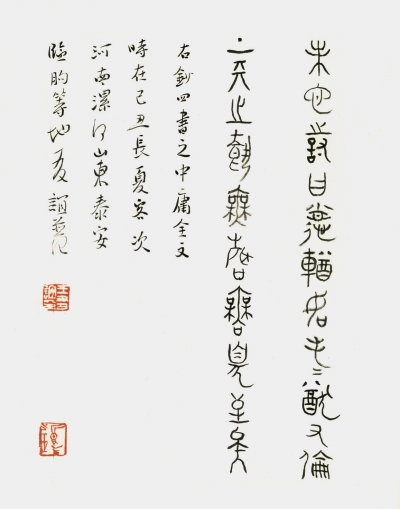 末也詩曰德輶如毛〻猷又倫
上天之載無聲無臭至矣
右鈔四書之中庸全文
時在己丑長夏客次
河南漯河山東泰安
臨朐等地